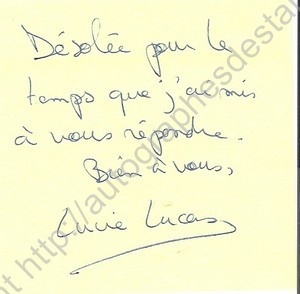 Désolée pour le
temps que j'ai mis
à vous répondre.
Bien à vous,
Lucie Lucas
http://autographesdestar